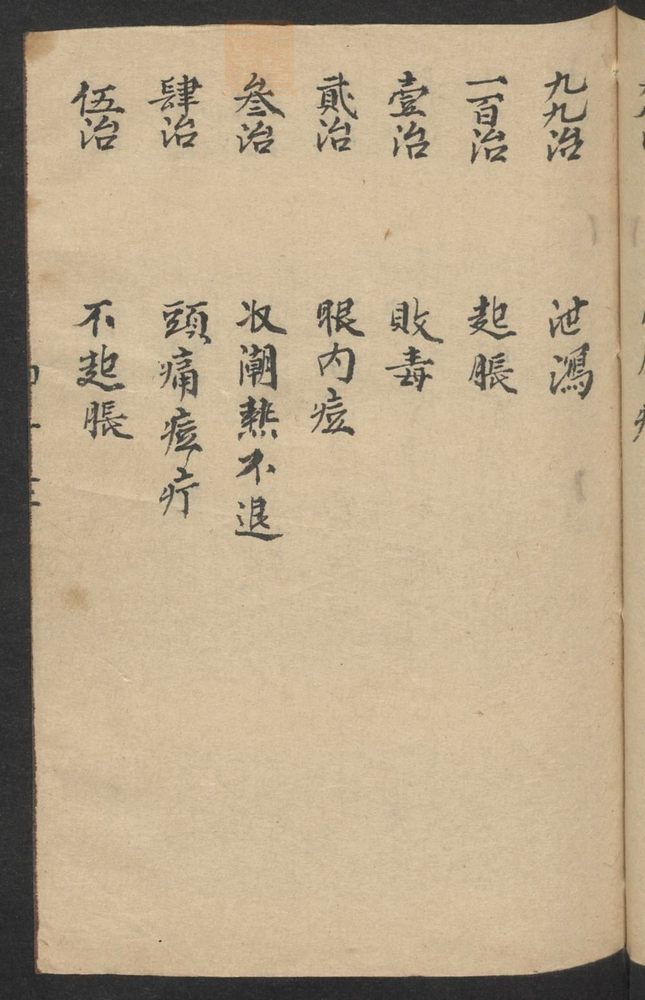 九九治 泄瀉
一百治 起脹
壹治 敗毒
貳治 眼內痘
叁治 收潮熱不退
肆治 頭痛痘疔
伍治 不起脹